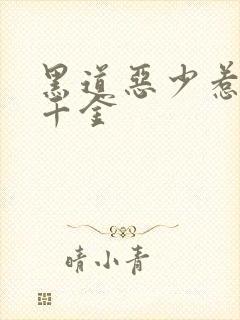 黑道惡少惹
千金
晴小青